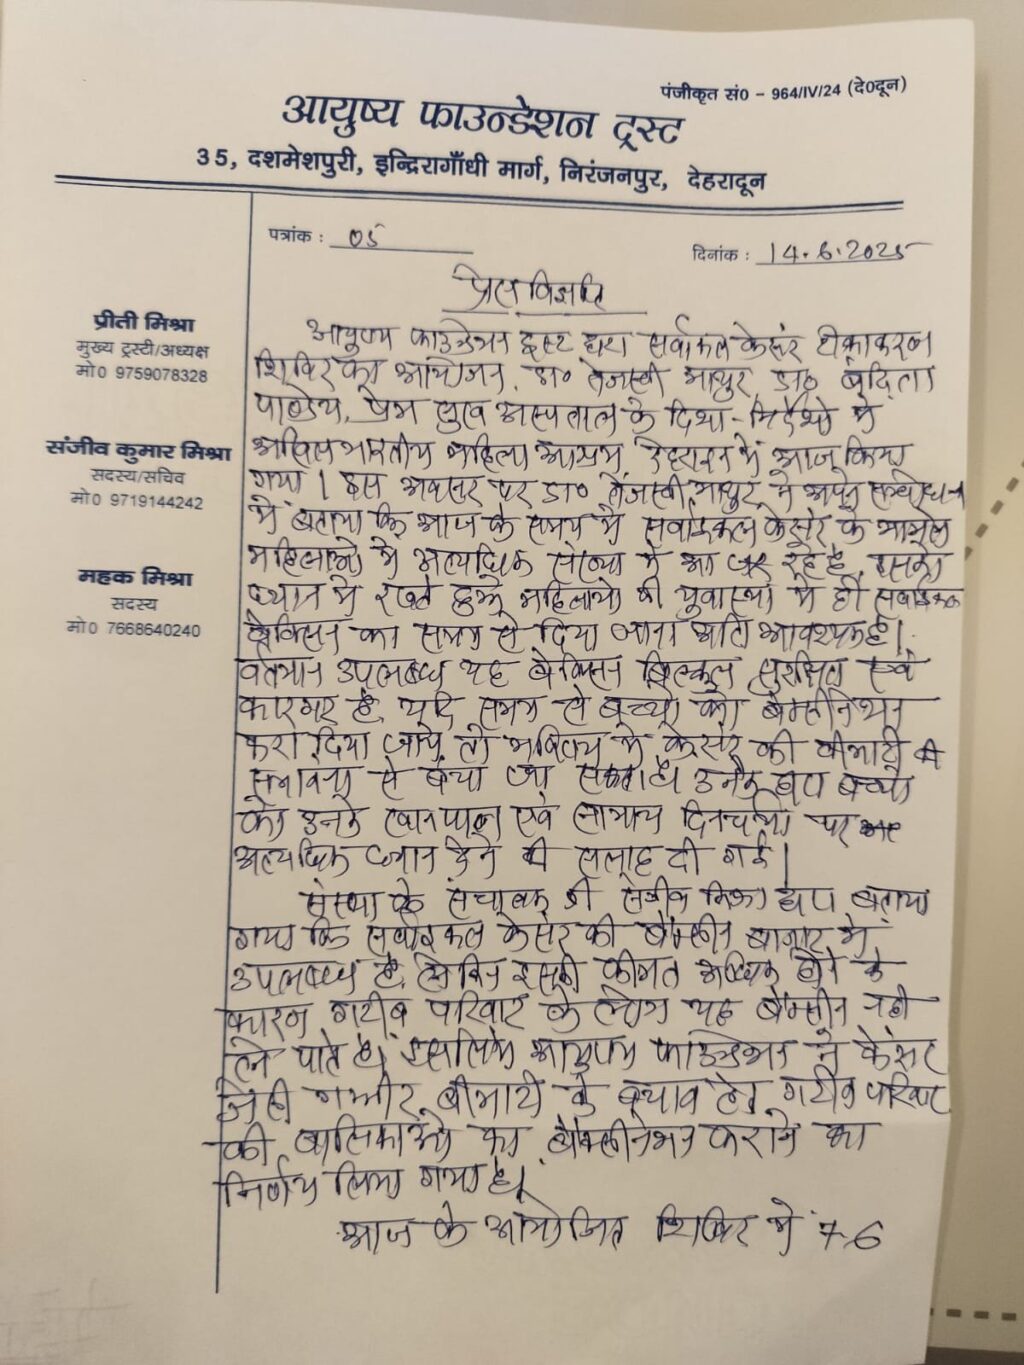 पंजीकृत सं0 - 964/IV/24 (दे0दून)
आयुष्य फाउन्डेशन ट्रस्ट
35, दशमेशपुरी, इन्दिरागाँधी मार्ग, निरंजनपुर, देहरादून
पत्रांक : 05
दिनांक : 14.6.2025
प्रीती मिश्रा
मुख्य ट्रस्टी/अध्यक्ष
मो0 9759078328
संजीव कुमार मिश्रा
सदस्य/सचिव
मो0 9719144242
महक मिश्रा
सदस्य
मो0 7668640240
प्रेस विज्ञप्ति
आयुष्य फाउन्डेशन ट्रस्ट द्वारा सर्वाकल केंसर टीकाकरण
शिविर का आयोजन, डा० तेजस्वी माथुर, डा०
पाण्डेय, प्रेम सुख अस्पताल के दिशा-निर्देशो मे
अखिल भारतीय महिला आश्रम, देहरादून मे आज किया
गया। इस अवसर पर डा० तेजस्वी माथुर ने अपने सम्बोधन
मे बताया कि आज के समय मे सर्वाइकल केंसर के मामले
महिलाओ मे अत्यधिक संख्या मे आ रहे है, इसको
ध्यान मे रखते हुये महिलाओ की युवास्था मे ही सर्वाइकल
वैक्सिन का समय से दिया जाना अति आवश्यक है।
वर्तमान उपलब्ध यह वेक्सिन बिल्कुल सुरक्षित एवं
कारगर है, यदि समय से बच्चो को वेक्सीनेशन
करा दिया जाये तो भविष्य मे केंसर की बीमारी की
सभावना से बचा जा सकता है। उनके द्वारा बच्चो
को उनके खानपान एवं सामान्य दिनचर्या पर
अत्यधिक ध्यान देने की सलाह दी गई।
संस्था के संचालक श्री संजीव मिश्रा द्वारा बताया
गया कि सर्वाइकल केंसर की वैक्सीन बाजार मे
उपलब्ध है, लेकिन इसकी कीमत अधिक होने के
कारण गरीब परिवार के लोग यह वेक्सीन नही
ले पाते है। इसलिये आयुष्य फाउन्डेशन ने केंसर
जैसी गम्भीर बीमारी के बचाव हेतु गरीब परिवार
की बालिकाओ का वैक्सीनेशन कराने का
निर्णय लिया गया है।
आज के आयोजित शिविर मे 76